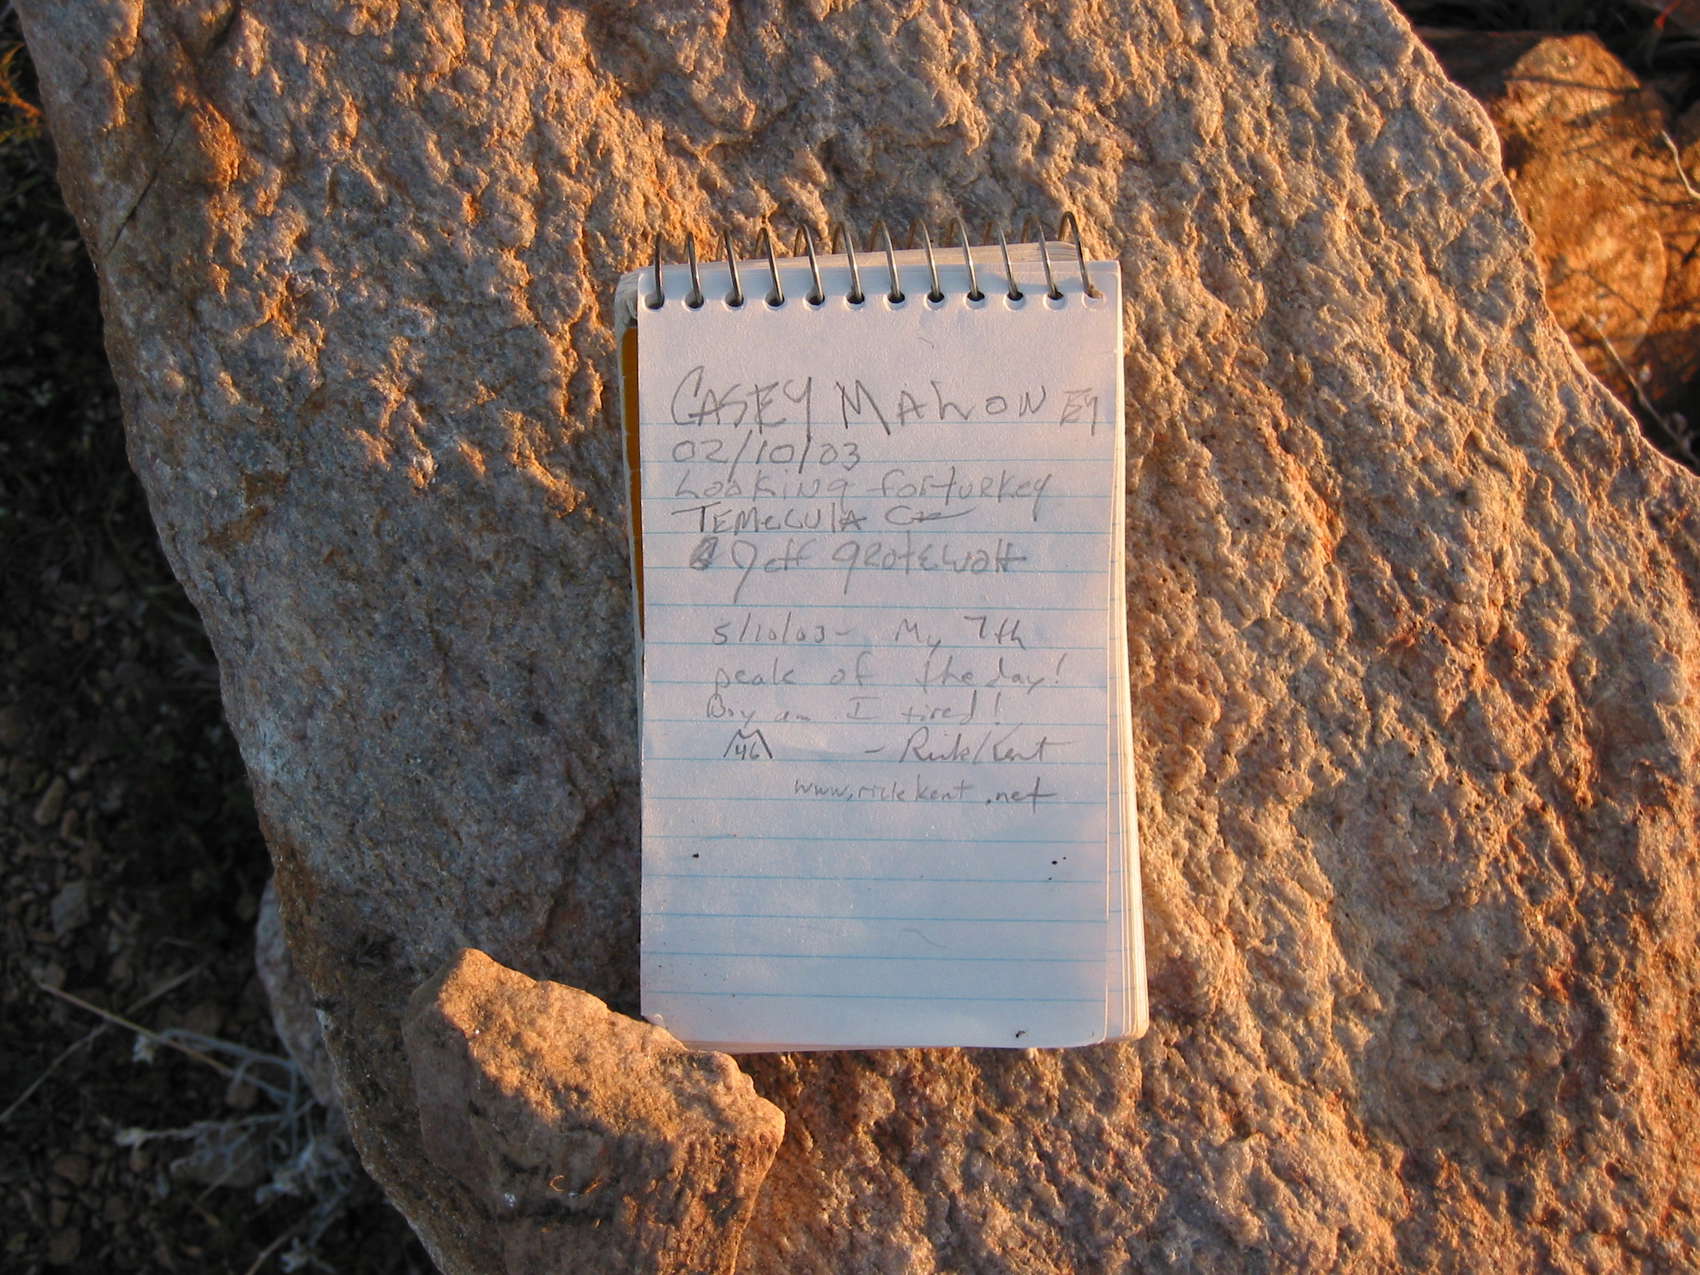 CASEY MAHON EY
02/10/03
Looking for turkey
TEMECULA CA
& Jeff Grotewolt
5/10/03- My 7th
peak of the day!
Boy am I tired!
46 - Rick Kent
www.rickkent.net